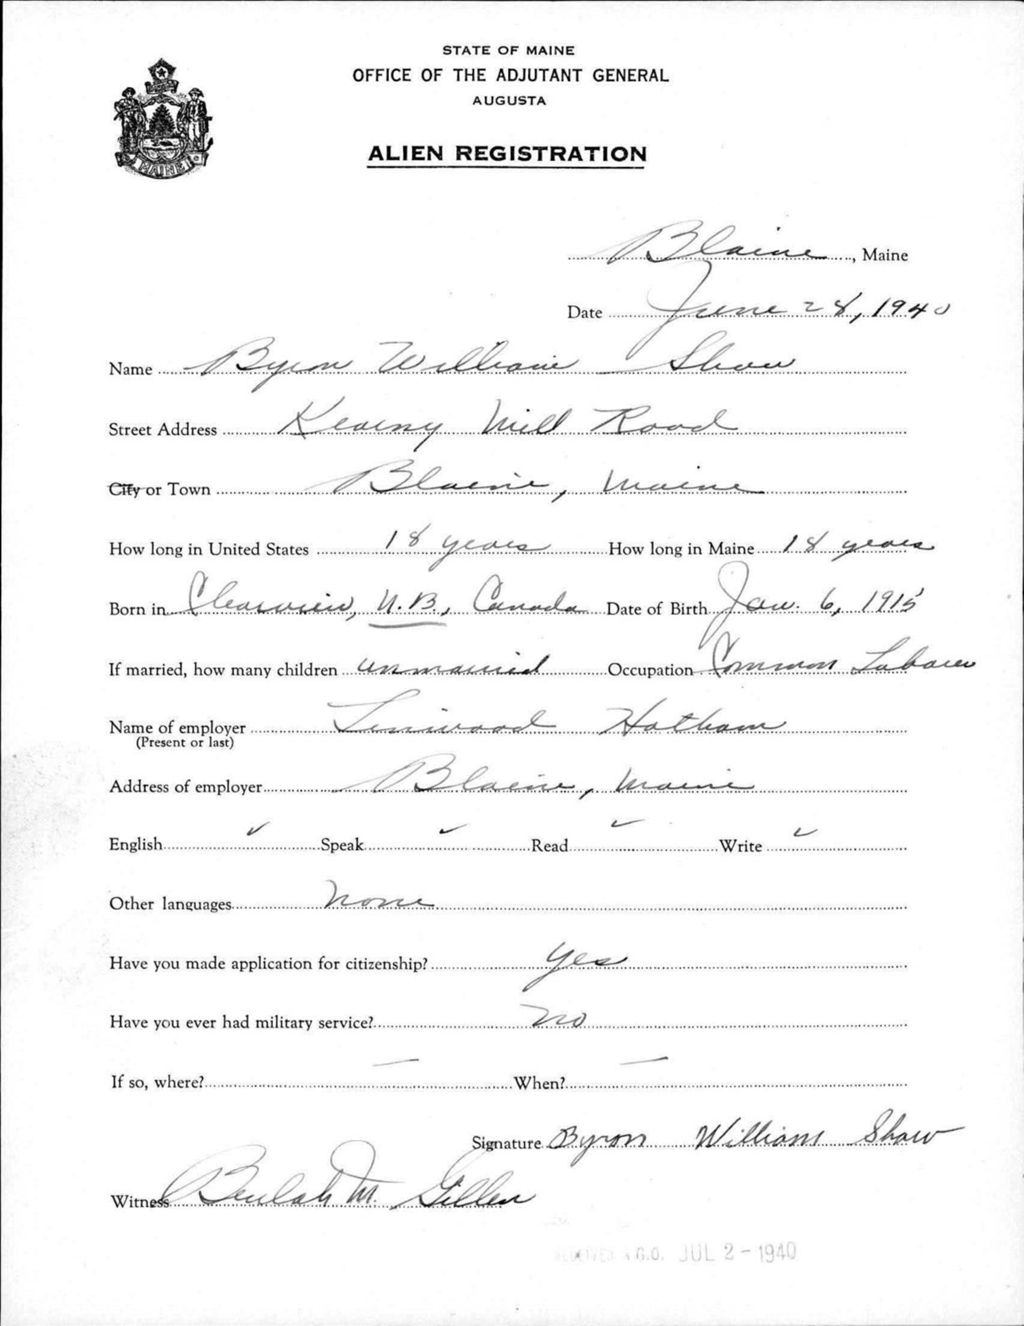 STATE OF MAINE
OFFICE OF THE ADJUTANT GENERAL
AUGUSTA
MAINE
ALIEN REGISTRATION
Blaine, Maine
Date June 28, 1940
Name Byron William Shaw
Street Address Kearny Mill Road
City or Town Blaine, Maine
How long in United States 18 years How long in Maine 18 years
Born in Clearview, N.B., Canada Date of Birth Jan. 6, 1915
If married, how many children unmarried Occupation Common Laborer
Name of employer Linwood Hotham
(Present or last)
Address of employer Blaine, Maine
English ✓ Speak ✓ Read ✓ Write ✓
Other languages none
Have you made application for citizenship? yes
Have you ever had military service? no
If so, where? — When? —
Signature Byron William Shaw
Witness Beulah M. Gillen
RECEIVED A.G.O. JUL 2 - 1940